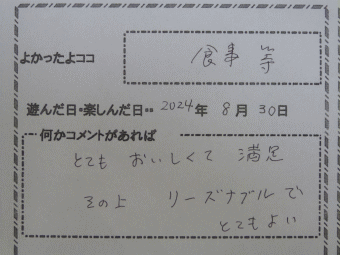 よかったよココ 食事 等
遊んだ日・楽しんだ日・・ 2024年 8月 30日
何かコメントがあれば
とても おいしくて 満足
その上 リーズナブルで
とてもよい